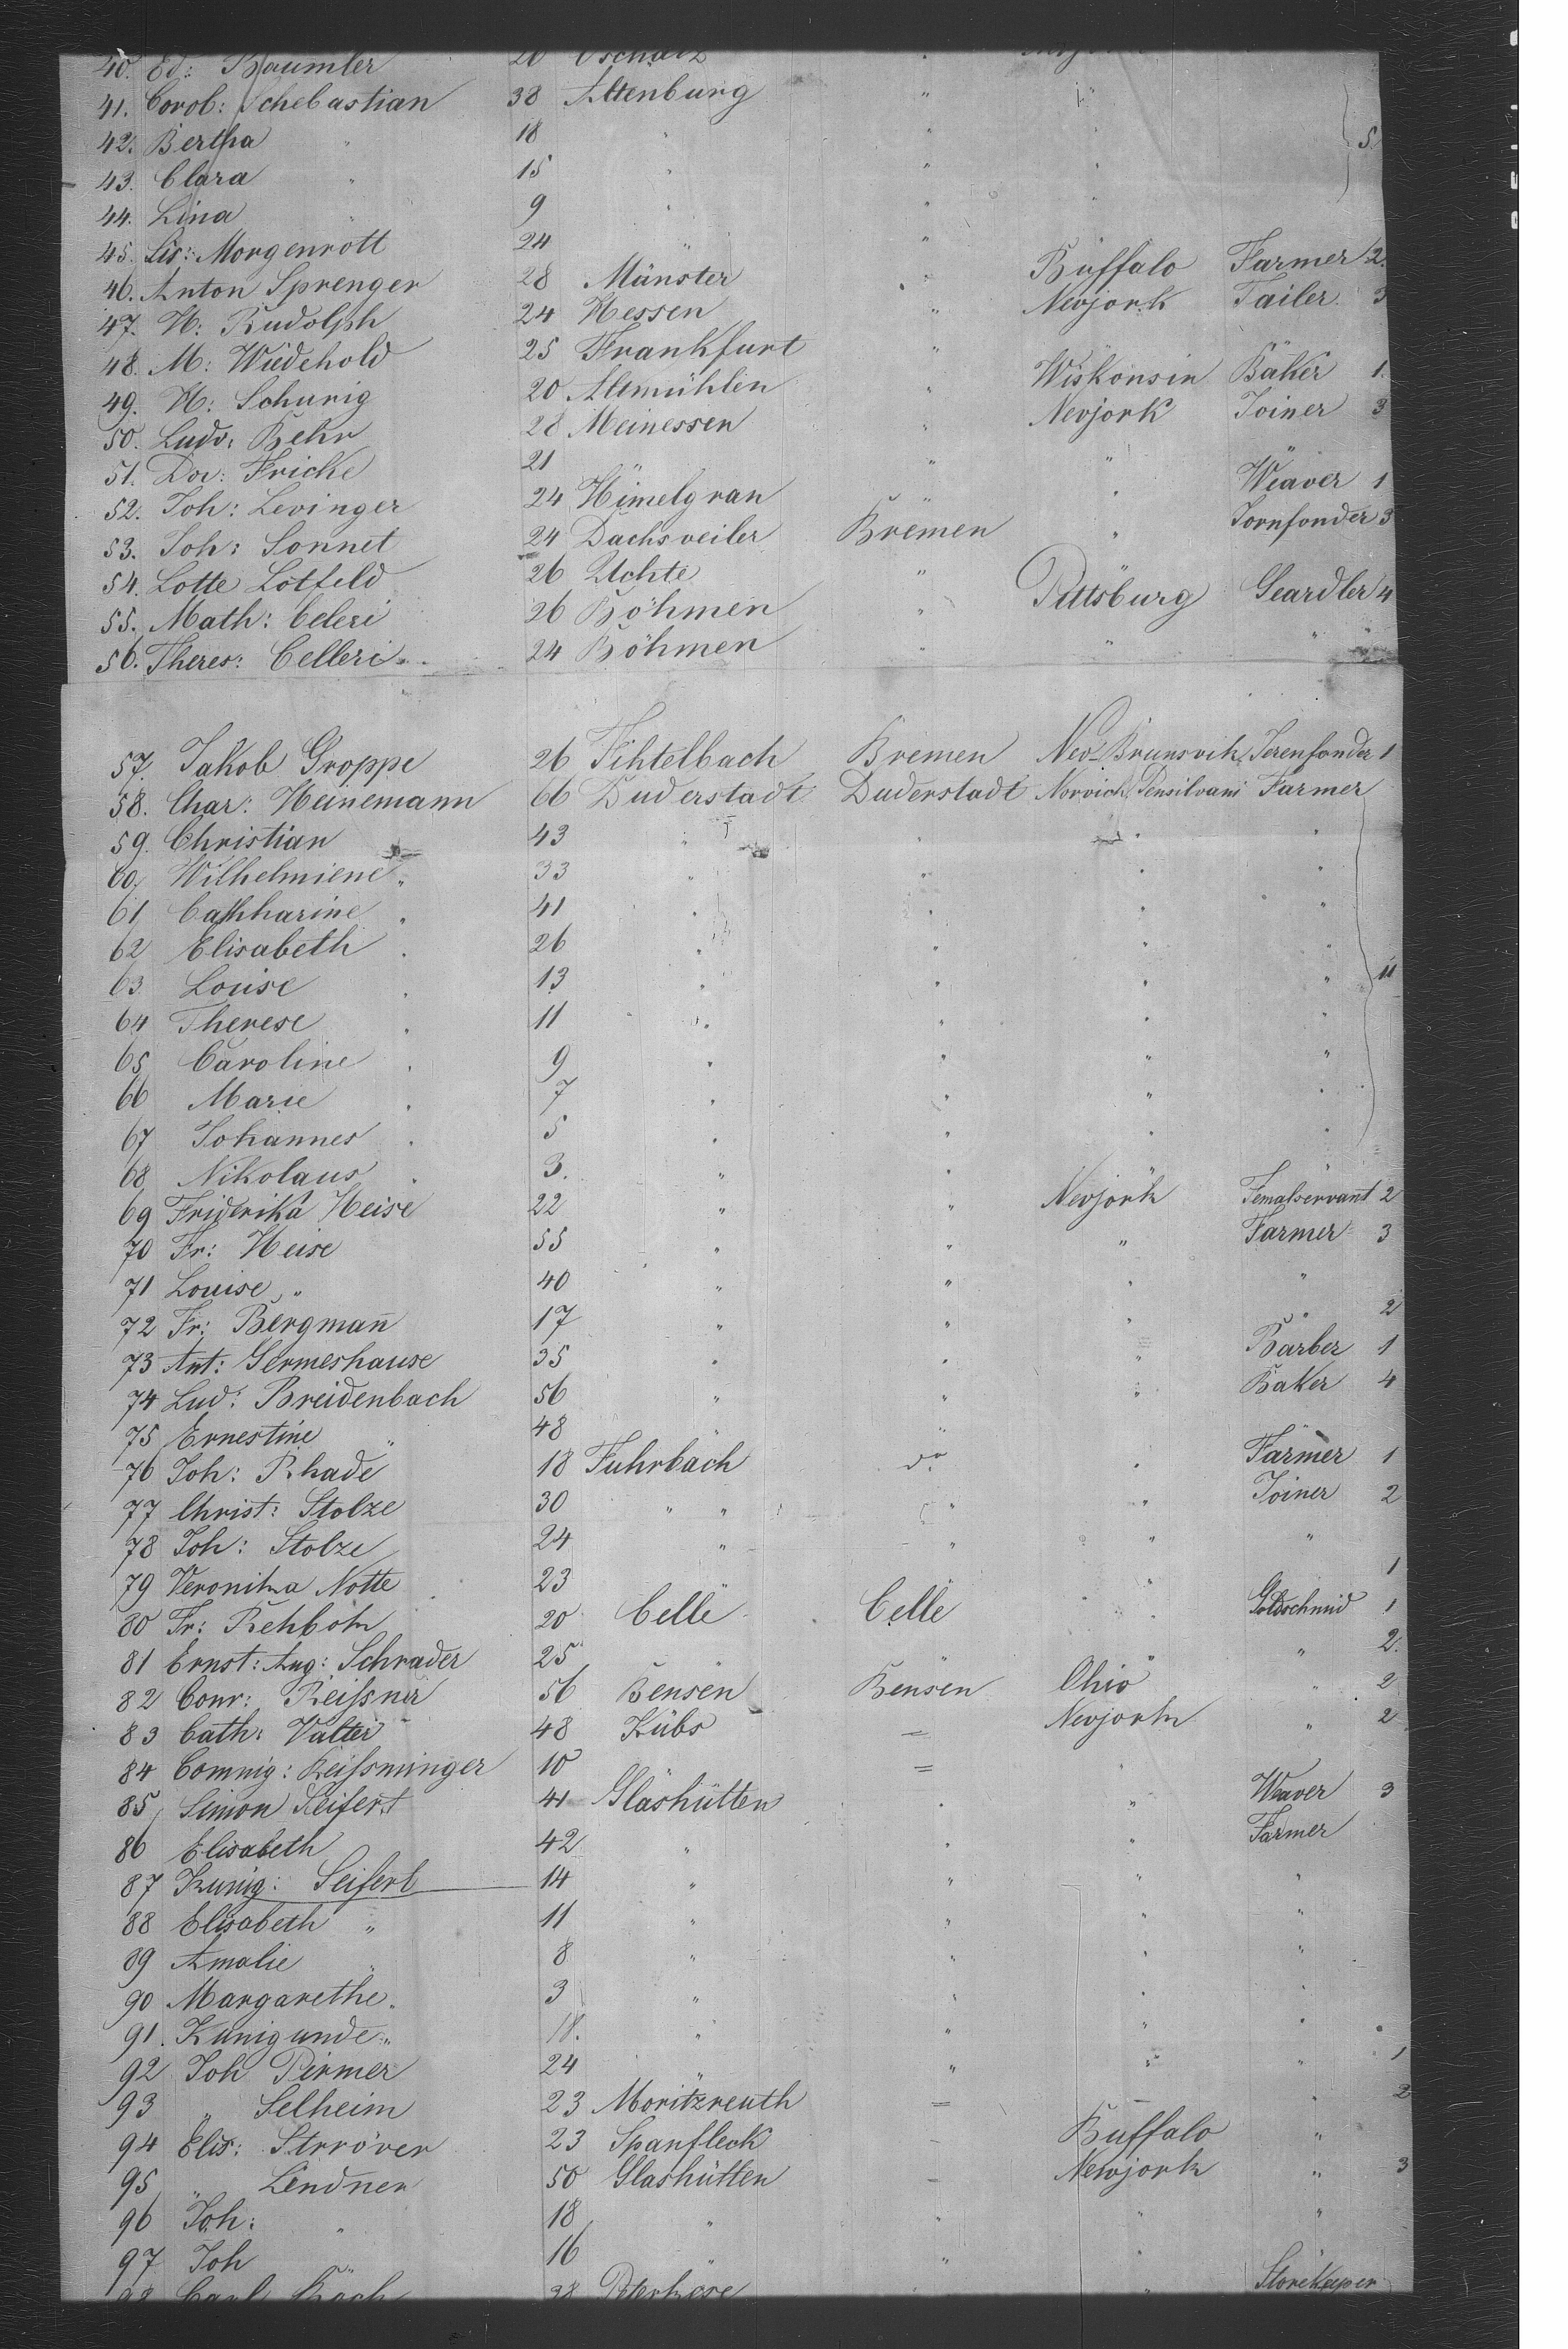 40. Ed: Baumler 20 Oschatz "
41. Carol: Schebastian 38 Altenburg " "
42. Bertha " 18 " " " 5.
43. Clara " 15 " " "
44. Lina " 9 " " "
45. Lis: Morgenrott 24 " "
46. Anton Sprenger 28 Münster " Buffalo Farmer 2.
47. H: Rudolph 24 Hessen " Nevjork Tailer 3
48. M: Wiedehold 25 Frankfurt "
49. H: Schurig 20 Altmühlen " Wiskonsin Bäker 1.
50. Ludv: Behr 28 Meinessen " Nevjork Joiner 3
51. Dor: Fricke 21 " " "
52. Joh: Levinger 24 Himelgran " " Weaver 1
53. Joh: Sonnet 24 Dachsveiler Bremen " Jornfonder 3
54. Lotte Lotfeld 26 Uchte "
55. Math: Celeri 26 Böhmen " Pittsburg Geardler 4
56. Theres: Celleri 24 Böhmen " " "
57. Jakob Groppe 26 Fihtelbach Bremen Nev Brunsvik Jerenfonder 1
58. Char: Heinemann 66 Duderstadt Duderstadt Norvich Pensilvani Farmer
59. Christian 43 " " " "
60. Wilhelmiene " 33 " " " "
61 Cathharine " 41 " " " "
62 Elisabeth " 26 " " " "
63 Louise " 13 " " " " 11
64 Therese " 11 " " "
65 Caroline " 9 " " " "
66 Marie " 7 " " " "
67 Johannes " 5 " " " "
68 Nikolaus " 3. " "
69 Friderika Heise 22 " " Nevjork Femalservant 2
70 Fr: Heise 55 " " " Farmer 3
71 Louise " 40 " " " "
72 Fr: Bergman̄ 17 " " " " 2
73 Ant: Germeshause 35 " " " Barber 1
74 Lud: Breidenbach 56 " " " Baker 4
75 Ernestine " 48 "
76 Joh: Rhade 18 Fuhrbach do " Farmer 1
77 Christ: Stolze 30 " " " " Joiner 2
78 Joh: Stolze 24 " " " "
79 Veronika Notte 23 " " " 1
80 Fr: Rehboh 20 Celle Celle " Goldschmid 1
81 Ernst: Aug: Schrader 25 " " " " 2.
82 Conr: Reißner 56 Bensen Bensen Ohio " 2
83 Cath: Valter 48 Kübs = Nevjork " 2
84 Reißminger 10 = "
85 Simon Seifert 41 Glashütten " " Weaver 3
86 Elisabeth 42 " " " Farmer
87 Kunig: Seifert 14 " " " "
88 Elisabeth " 11 " " " "
89 Amalie " 8 " " " "
90 Margarethe " 3 " " " "
91. Kunigunde " 18. " " " "
92 Joh Pirmer 24 " " " " 1
93 " Selheim 23 Moritzreuth = " " 2
94 Elis: Strröver 23 Spanfleck - Buffalo "
95 " Lindner 50 Glashütten - Newjork " 3
96 Joh: " 18 " " " "
97 Joh " 16 " " "
98 Carl Koch 28 " Storekeeper